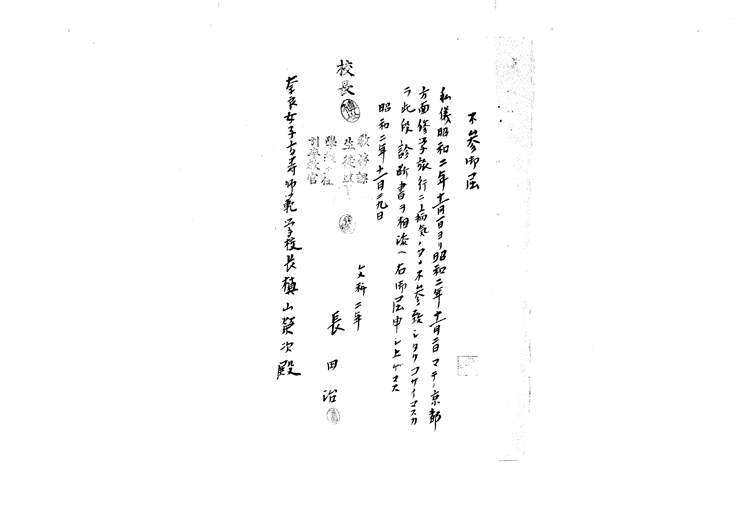 不参御届
私儀昭和二年十一月一日ヨリ昭和二年十一月二日マデ京都
方面修学旅行ニ病気ノタメ不参致シタクゴザイマスカ
ラ此段診断書ヲ相添ヘ右御届申シ上ゲマス
昭和二年十一月一九日
文科二年
長田治
校長
教務課
生徒
奈良女子高等師範学校長槙山榮次殿